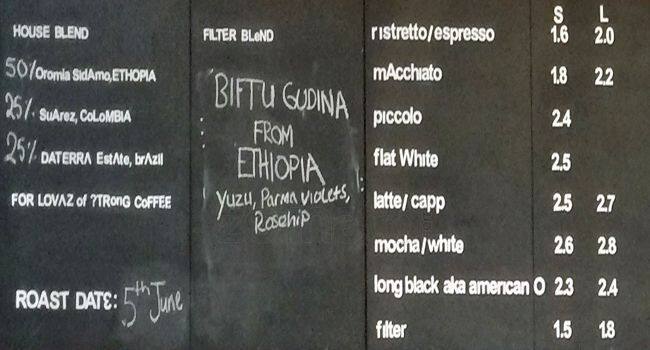 HOUSE BLEND
50% Oromia SidAmo, ETHOPIA
25% SuArez, CoLoMBIA
25% DATERRA EstAte, brAzil
FOR LOVAZ of ?TRonG CoFFEE
ROAST DATE: 5th June
FILTER BLeND
BIFTU GUDINA
FROM
ETHIOPIA
Yuzu, Parma violets,
Rosehip
S L
ristretto/espresso 1.6 2.0
mAcchiato 1.8 2.2
piccolo 2.4
flat White 2.5
latte/ capp 2.5 2.7
mocha/white 2.6 2.8
long black aka american O 2.3 2.4
filter 1.5 1.8